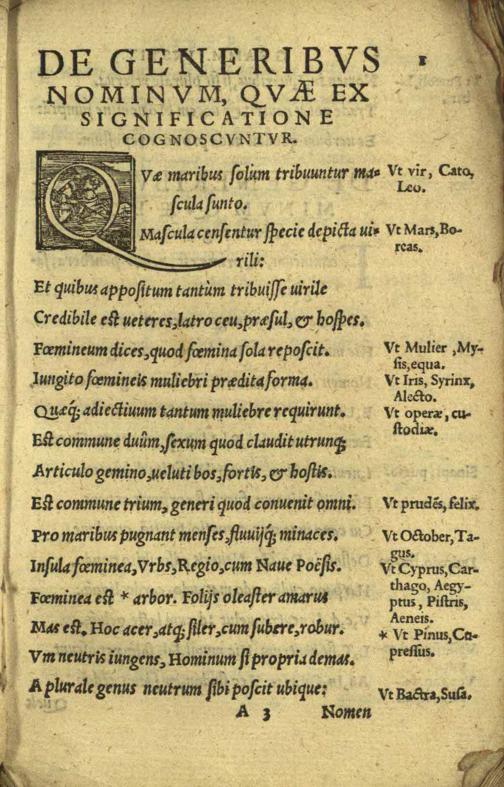 DE GENERIBVS
NOMINVM, QVÆ EX
SIGNIFICATIONE
COGNOSCVNTVR.
QVæ maribus solùm tribuuntur ma= Vt vir, Cato,
scula sunto. Leo.
Mascula censentur specie depicta ui= Vt Mars, Bo-
rili: reas.
Et quibus appositum tantùm tribuisse uirile
Credibile est ueteres, latro ceu, præsul, & hospes.
Fœmineum dices, quod fœmina sola reposcit. Vt Mulier, My-
sis, equa.
Iungito fœmineis muliebri prædita forma. Vt Iris, Syrinx,
Alecto.
Quæq; adiectiuum tantum muliebre requirunt. Vt operæ, cu-
stodiæ.
Est commune duûm, sexum quod claudit utrunq;
Articulo gemino, ueluti bos, fortis, & hostis.
Est commune trium, generi quod convenit omni. Vt prudẽs, felix.
Pro maribus pugnant menses, fluuijq; minaces. Vt October, Ta-
gus.
Insula fœminea, Vrbs, Regio, cum Naue Poësis. Vt Cyprus, Car-
thago, Aegy-
Fœminea est * arbor. Folijs oleaster amarus ptus, Pistris,
Aeneis.
Mas est. Hoc acer, atq; siler, cum subere, robur. * Vt Pinus, Cu-
pressus.
Vm neutris iungens, Hominum si propria demas.
A plurale genus neutrum sibi poscit ubique: Vt Bactra, Susa.
A 3 Nomen